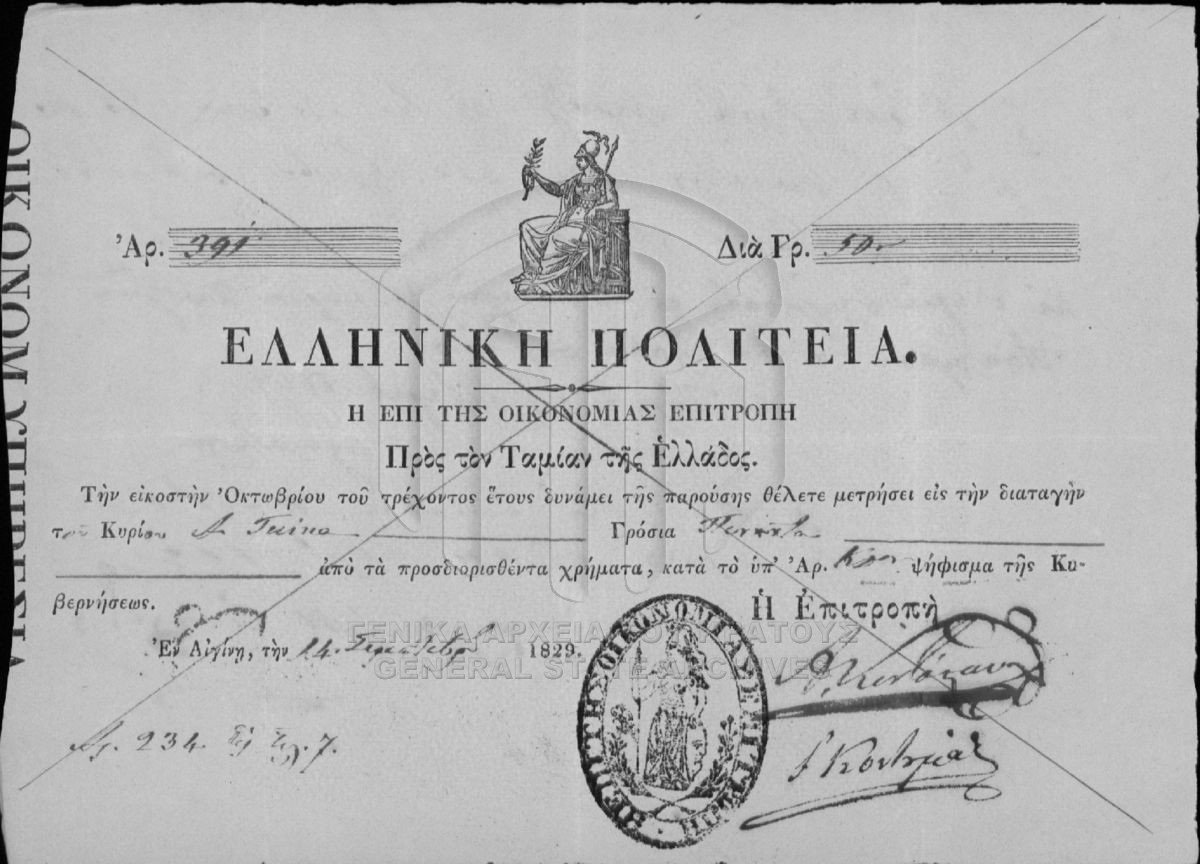 ΟΙΚΟΝΟΜ. ΥΠΗΡΕΣΙΑ
Ἀρ. 391
Διὰ Γρ. 50
ΕΛΛΗΝΙΚΗ ΠΟΛΙΤΕΙΑ.
Η ΕΠΙ ΤΗΣ ΟΙΚΟΝΟΜΙΑΣ ΕΠΙΤΡΟΠΗ
Πρὸς τὸν Ταμίαν τῆς Ἑλλάδος.
Τὴν εἰκοστὴν Ὀκτωβρίου τοῦ τρέχοντος ἔτους δυνάμει τῆς παρούσης θέλετε μετρήσει εἰς τὴν διαταγὴν
τοῦ Κυρίου Γρόσια Πενῆντα
ἀπὸ τὰ προσδιορισθέντα χρήματα, κατὰ τὸ ὑπ' Ἀρ. ψήφισμα τῆς Κυ-
βερνήσεως.
Ἡ Ἐπιτροπὴ
Ἐν Αἰγίνῃ, τὴν 14. Σεπτεμβρ 1829.
ΓΕΝΙΚΑ ΑΡΧΕΙΑ ΤΟΥ ΚΡΑΤΟΥΣ
GENERAL STATE ARCHIVES
Η ΕΠΙ ΤΗΣ ΟΙΚΟΝΟΜΙΑΣ ΕΠΙΤΡΟΠΗ
Α. Κοντόσταυλος
Ἀρ. 234. 7.